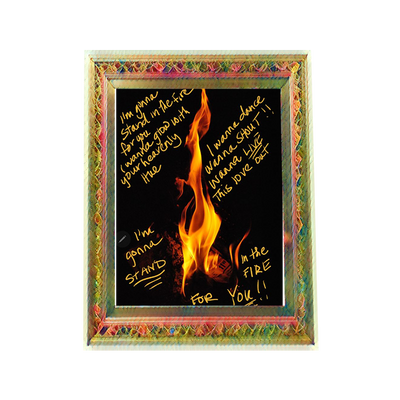 I'm gonna
stand in the fire
for you
I wanna glow with
your heavenly
Hue
I wanna dance
wanna SHOUT!!
Wanna LIVE
THIS LOVE OUT
I'm
gonna
STAND
in the
FIRE
FOR YOU!!